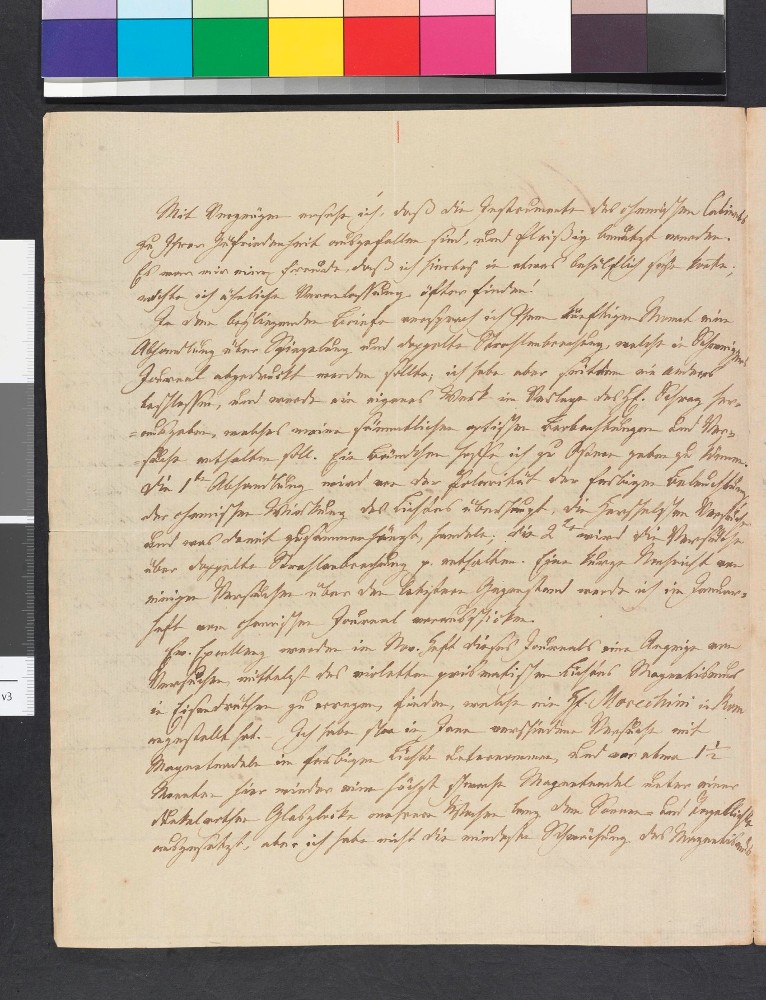 Mit Vergnügen ersehe ich, daß die Instrumente des chemischen Cabinets
zu Ihrer Zufriedenheit ausgefallen sind, und fleißig benutzt werden.
Es war mir eine Freude, daß ich hierbei in etwas behülflich seyn konnte;
möchte ich ähnliche Veranlassung öfter finden!
In dem beyliegenden Briefe versprach ich Ihnen künftigen Monat eine
Abhandlung über Spiegelung und doppelte Strahlenbrechung, welche in Schweiggers
Journal abgedruckt werden sollte; ich habe aber seitdem ein anderes
beschlossen, und werde ein eigenes Werk im Verlage des H. Schrag her-
=ausgeben, welches meine sämmtlichen optischen Beobachtungen und Ver=
=suche enthalten soll. Ein Bändchen hoffe ich zu Ostern geben zu können.
Die 1te Abhandlung wird von der Polarität der farbigen Beleuchtung
der chemischen Wirkung des Lichtes überhaupt, die Herschelschen Versuche
und was damit zusammenhängt, handeln; die 2te wird die Versuche
über doppelte Strahlenbrechung p. enthalten. Eine kurze Nachricht von
einigen Versuchen über den letztern Gegenstand werde ich im Januar=
heft vom chemischen Journal vorausschicken.
Ew. Excellenz werden im Nov. Heft dieses Journals eine Anzeige von
Versuchen mittelst des violetten prismatischen Lichtes Magnetismus
in Eisendräthen zu erregen, finden, welche ein H. Morechini in Rom
angestellt hat. – Ich habe schon in Jena verschiedene Versuche mit
Magnetnadeln im farbigen Lichte unternommen, und vor etwa 1½
Monaten hier wieder eine höchst schwache Magnetnadel unter einer
violetrothen Glasglocke mehrere Wochen lang dem Sonnen= und Tageslichte
ausgesetzt, aber ich habe nicht die mindeste Schwächung des Magnetismus